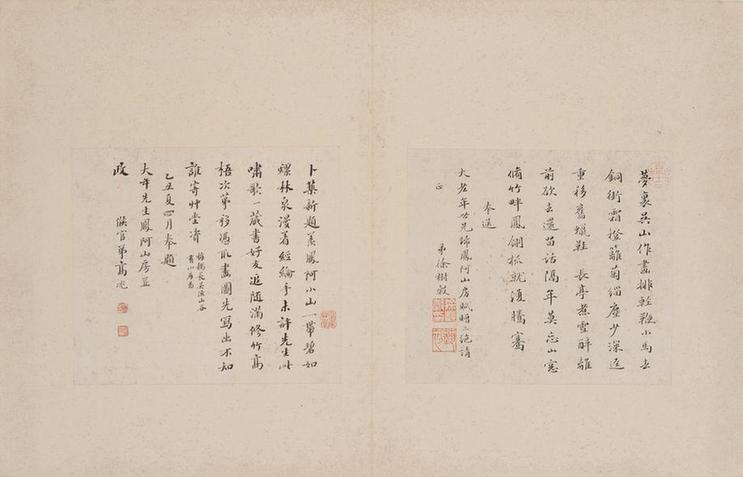 夢裏吴山作畫排輕鞭小馬去
銅街霜橙籬菊緇塵少深逕
重移舊蠟鞋 長亭煮雪醉離
前欲去還留話隔年莫忘山窓
脩竹畔鳳翎摇就復騰騫
奉送
大老年丈兄歸鳳阿山房賦贈二絶請
正
弟徐樹敏
卜築新題羡鳳阿小山一帶碧如
螺林泉漫著經綸手未許先生此
嘯歌 藏書好友追隨滿修竹高
梧次第移憑取畫圖先寫出不知
誰寄艸堂資
乙丑夏四月奉題
大年先生鳳阿山房並
政
侯官弟高兆